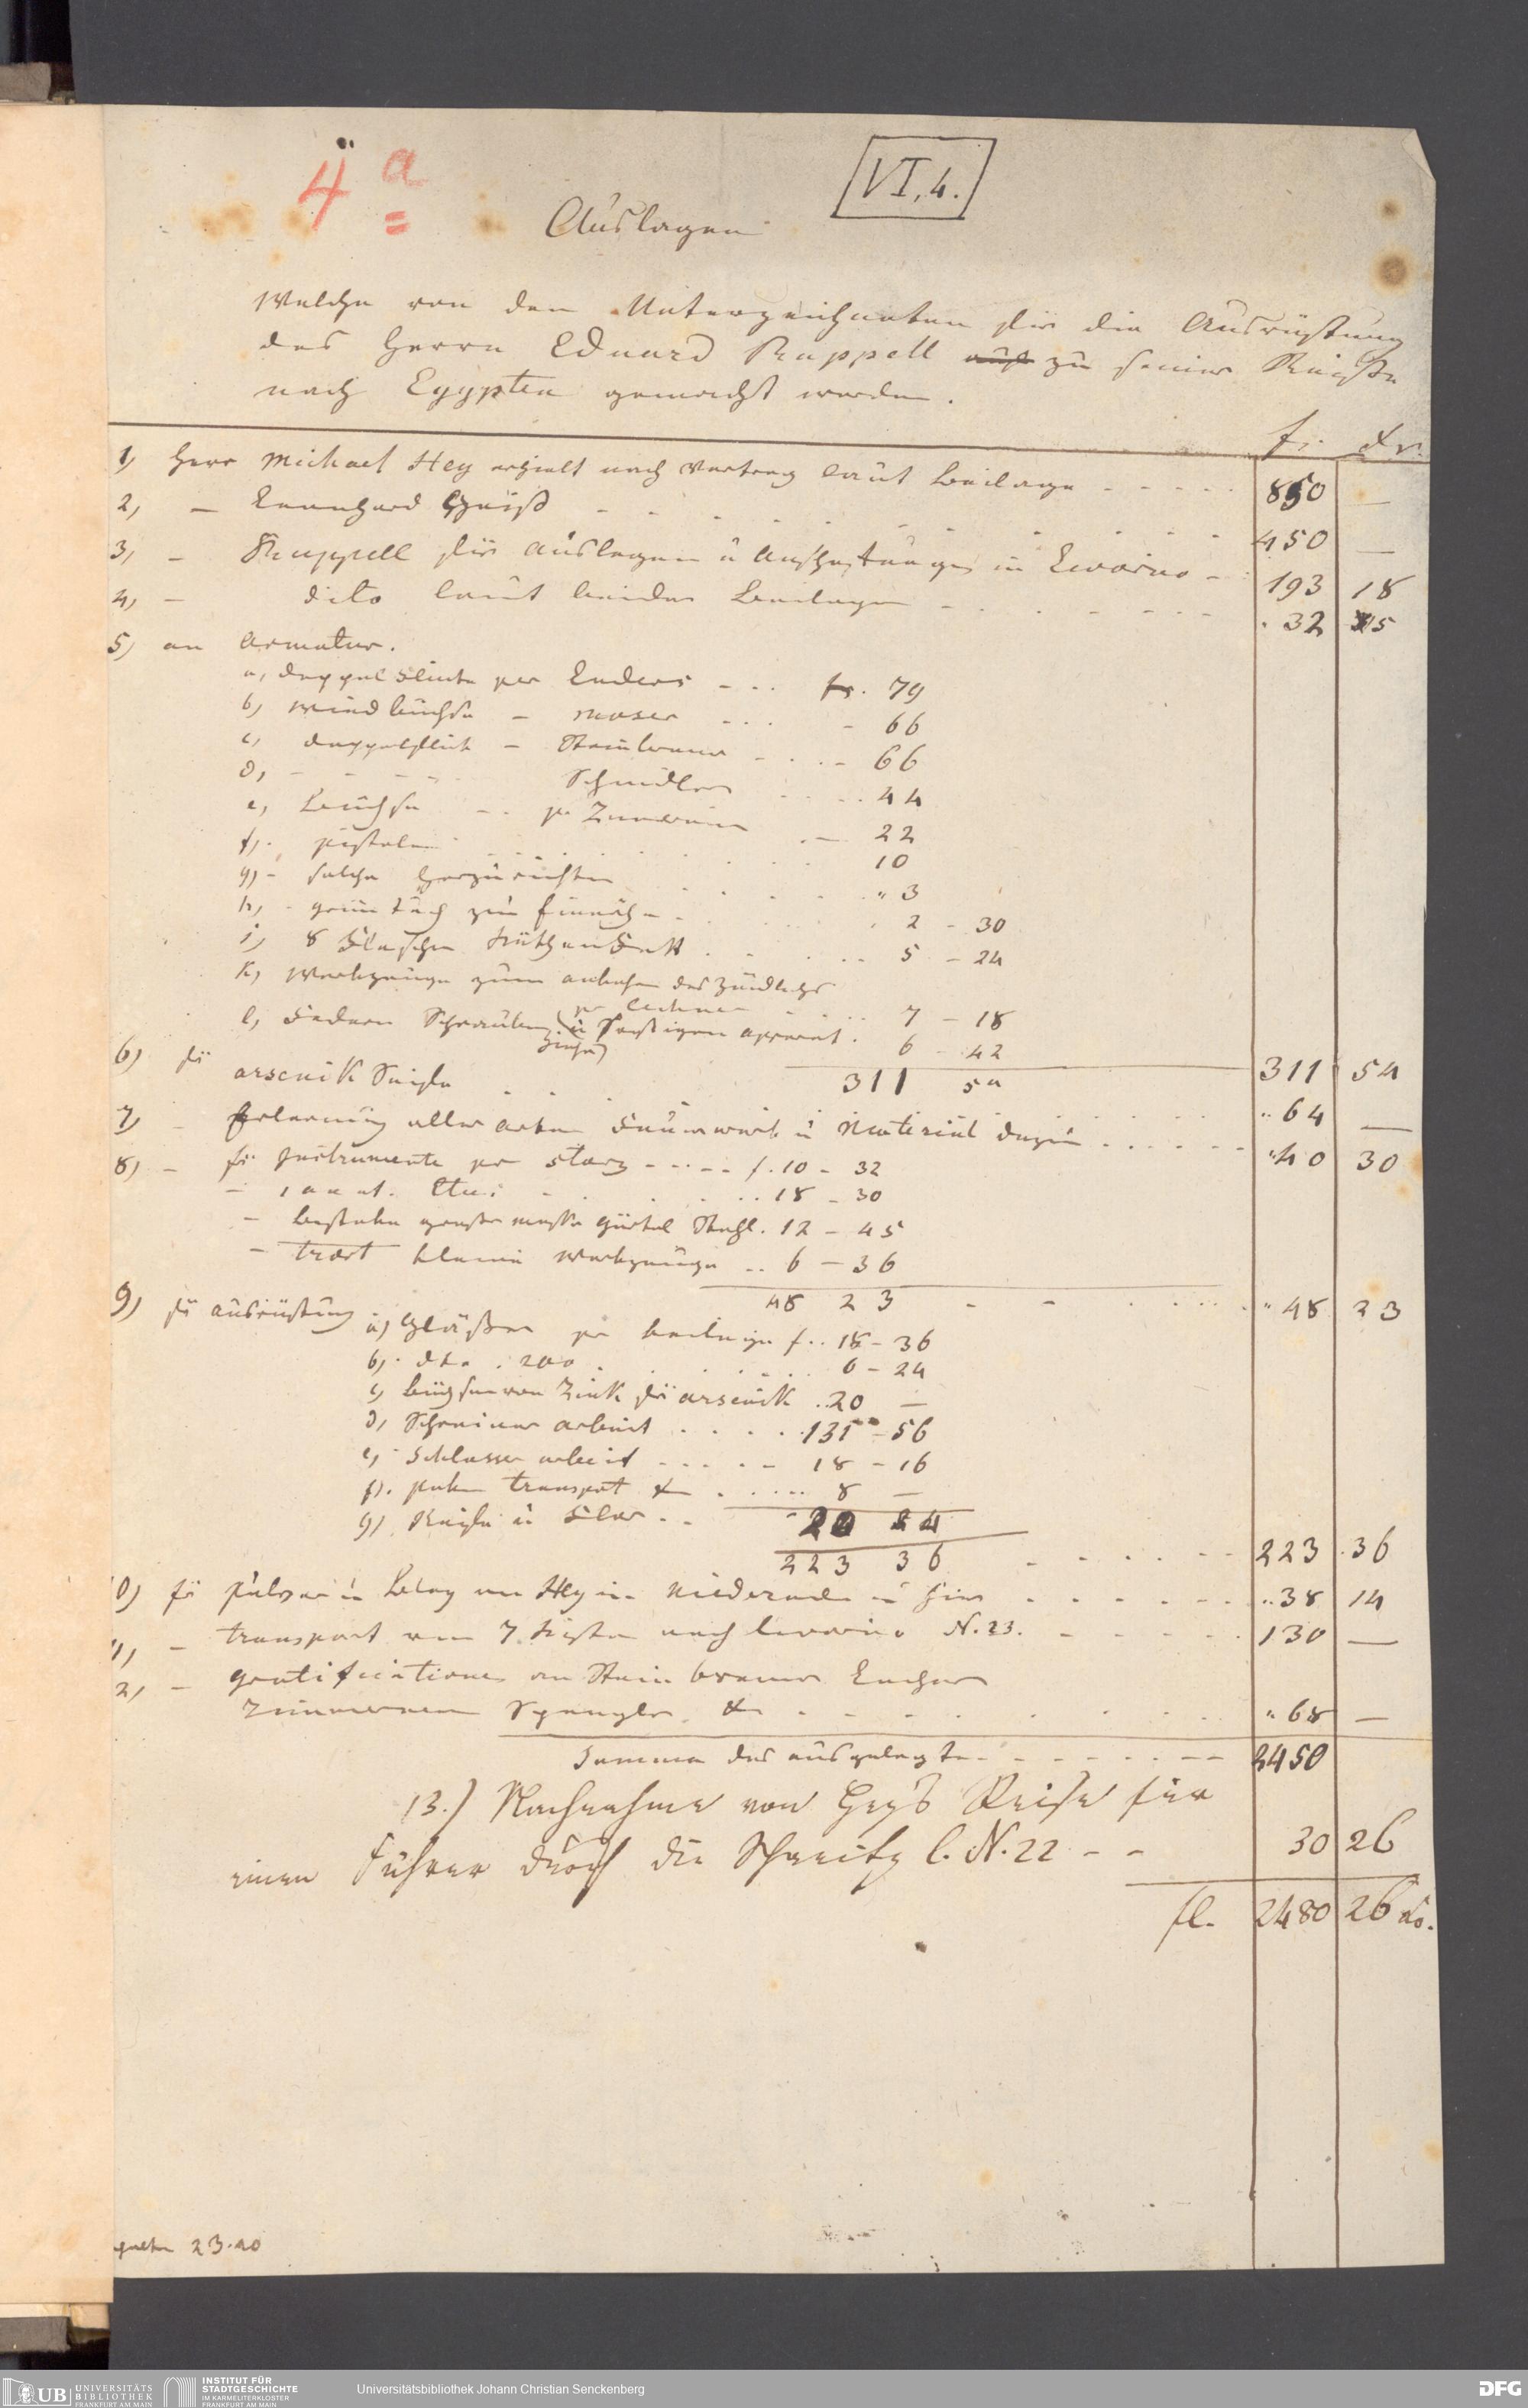 4 a
VI,4.
Auslagen
Welche von dem Unterzeichneten für die Ausrüstung
des Herrn Eduard Ruppell auf zu seiner Reise
nach Egypten gemacht worden.
fr. Xr.
1, Herr Michael Hey erhielt nach Vertrag laut Beilage - - - - - 850 —
2, — 450 —
3, — Ruppell für Auslagen u in Livorno - 193 18
4, — dito laut beider Beilagen - - - - 32 5
5, an Armatur.
a, doppel Flinte per Enders - - - fr. 79
b, Windbüchse - Moser - - - 66
c, doppelflint - Steinbrenner - - - 66
d, - - - Schmidler - - - 44
e, Büchse - - pr Zimmermann - 22
f, - pistolen - - - 10
g, - solche herzurichten - - - 3
h, - grün Tuch zum - - - 2 - 30
i, 8 Flaschen - - - 5 - 24
k, Werkzeuge zum des
pr - - - 7 - 18
l, Federn Schrauben u apparat. 6 - 42
311 54 311 54
6, für arsenik Seife - - - 64 —
7, — Erlernung aller arten Feuerwerk u Material dazu - - - 40 30
8, — für Instrumente pr Storz - - - f. 10 - 32
— 1 anat. Etui - - - 18 - 30
— große Stahl. 12 - 45
— kleine Werkzeuge - - 6 - 36
48 23 - - - 48 23
9, für ausrüstung a, Gläßer pr beilage f. 18 - 36
b, - dto . 200 - - - 6 - 24
c, büchsen von Zink für arsenik . 20 —
d, Schreiner arbeit - - - 131 - 56
e, - Schlosser arbeit - - - 18 - 16
f, transport & - - - 8 —
g, u - - 20 24
223 36 - - - 223 36
10, für pulver u an Hey in u - - - 38 14
11, — transport von 7. Kisten nach Livorno N. 23. - - - 130 —
12, — gratificationen an Steinbrenner
Zimmermann Spengler & - - - 68 —
Summa des ausgelegten - - - 2450
13.) Nachnahme von Hey's Reise für
einen Führer durch die Schweitz l. N. 22 - - 30 26
fl. 2480 26 Xr.
23.40
UB UNIVERSITÄTS
BIBLIOTHEK
FRANKFURT AM MAIN
INSTITUT FÜR
STADTGESCHICHTE
IM KARMELITERKLOSTER
FRANKFURT AM MAIN
Universitätsbibliothek Johann Christian Senckenberg
DFG